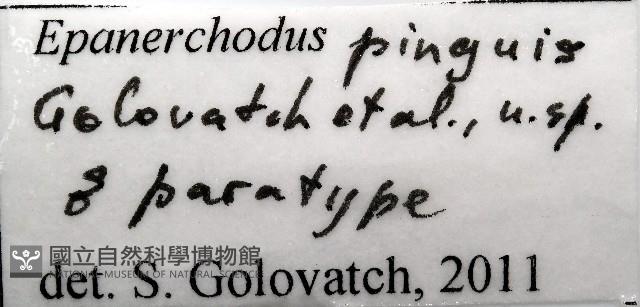 Epanerchodus pinguis
Golovatch et al., n. sp.
♂ paratype
國立自然科學博物館
NATIONAL MUSEUM OF NATURAL SCIENCE
det. S. Golovatch, 2011